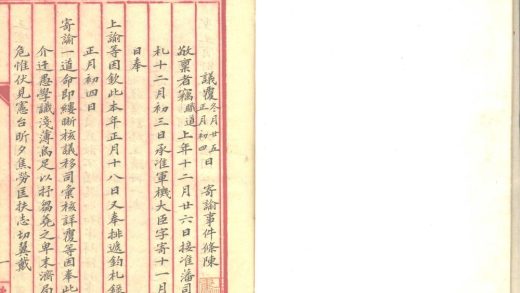 議覆冬月廿五正月初四日 寄諭事件條陳
敬稟者竊職道上年十二月廿六日接准藩司
札十二月初三日承准軍機大臣字寄十一月
日奉
上諭等因欽此本年正月十八日又奉排遞鈞札錄
正月初四日
寄諭一道命即縷晰核議移司彙核詳覆等因奉此
介迂愚學識淺薄烏足以抒芻蕘之卑末濟局
危惟伏見憲台昕夕焦勞匡扶志切冀戴